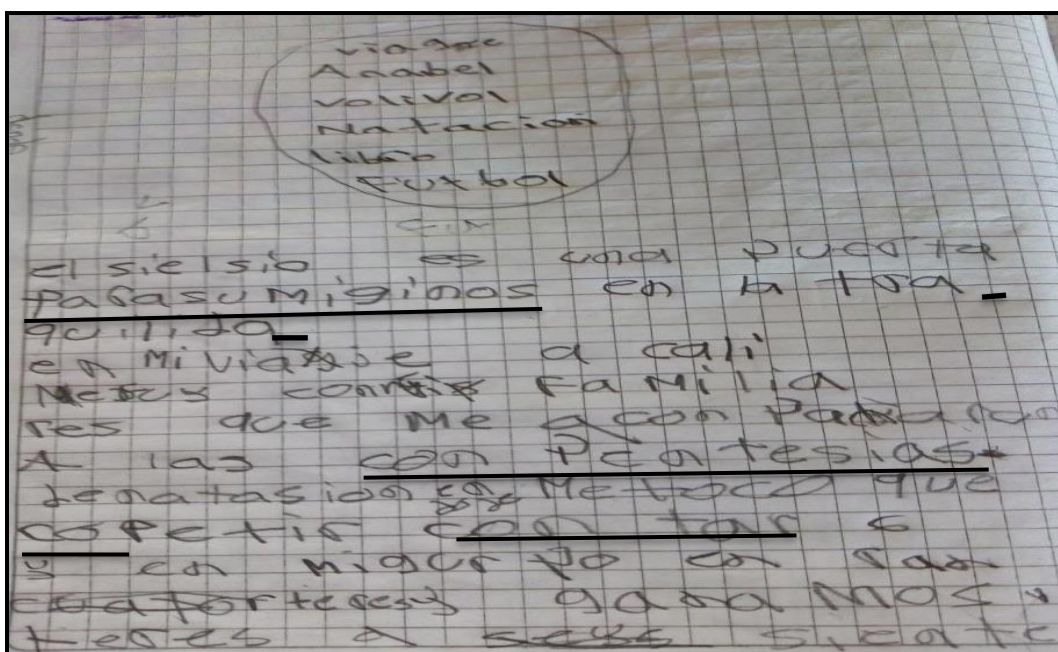 viagre
Anabel
volivol
Natacion
libro
Futbol
el sielsio es una puerta
parasumiginos en la tra
quilida
en Miviaje a cali
con familia
res que me acon
A las con Pentesias
denatasion en Metoco que
copetir con tar 6
y en migurpo en ran
tecesy ganaMos
a siente